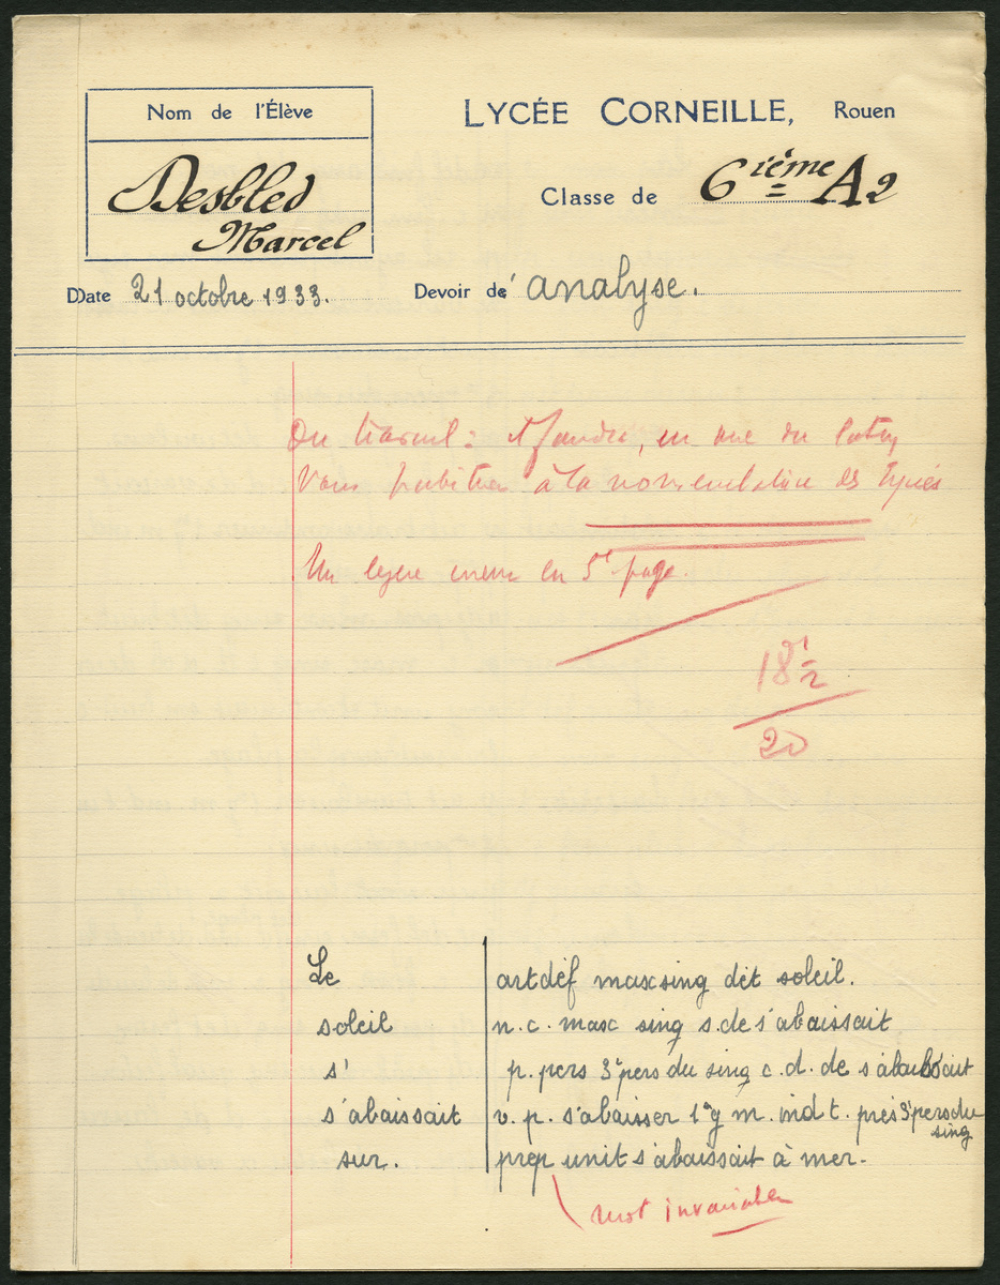 Nom de l'Élève
Desbled
Marcel
LYCÉE CORNEILLE, Rouen
Classe de 6ième A2
Date 21 octobre 1933.
Devoir d' analyse.
Du travail : il faudra, en vue du latin
vous habituer à la nomenclature des lycées
Un legère erreur en 5e page.
18 1/2
20
Le art déf masc sing dét soleil.
soleil n. c. masc sing s. de s'abaissait
s' p. pers 3e pers du sing c. d. de s'abaissait
s'abaissait v. p. s'abaisser 1er g m. ind t. prés 3e pers du
sing
sur. prep unit s'abaissait à mer.
mot invariable